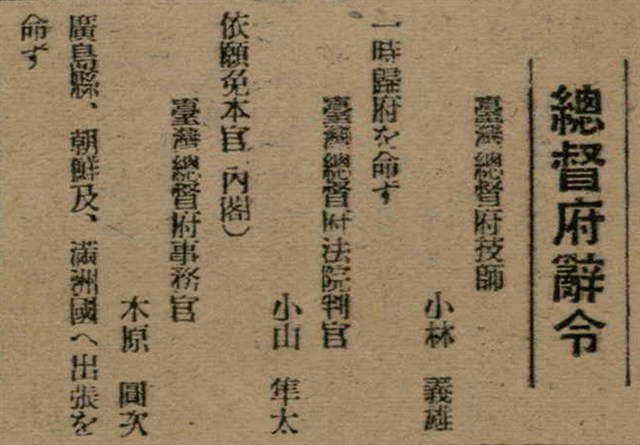 總督府辭令
臺灣總督府技師
小林　義雄
一時歸府を命ず
臺灣總督府法院判官
小山　隼太
依願免本官（內閣）
臺灣總督府事務官
木原　圓次
廣島縣、朝鮮及、滿洲國へ出張を
命ず